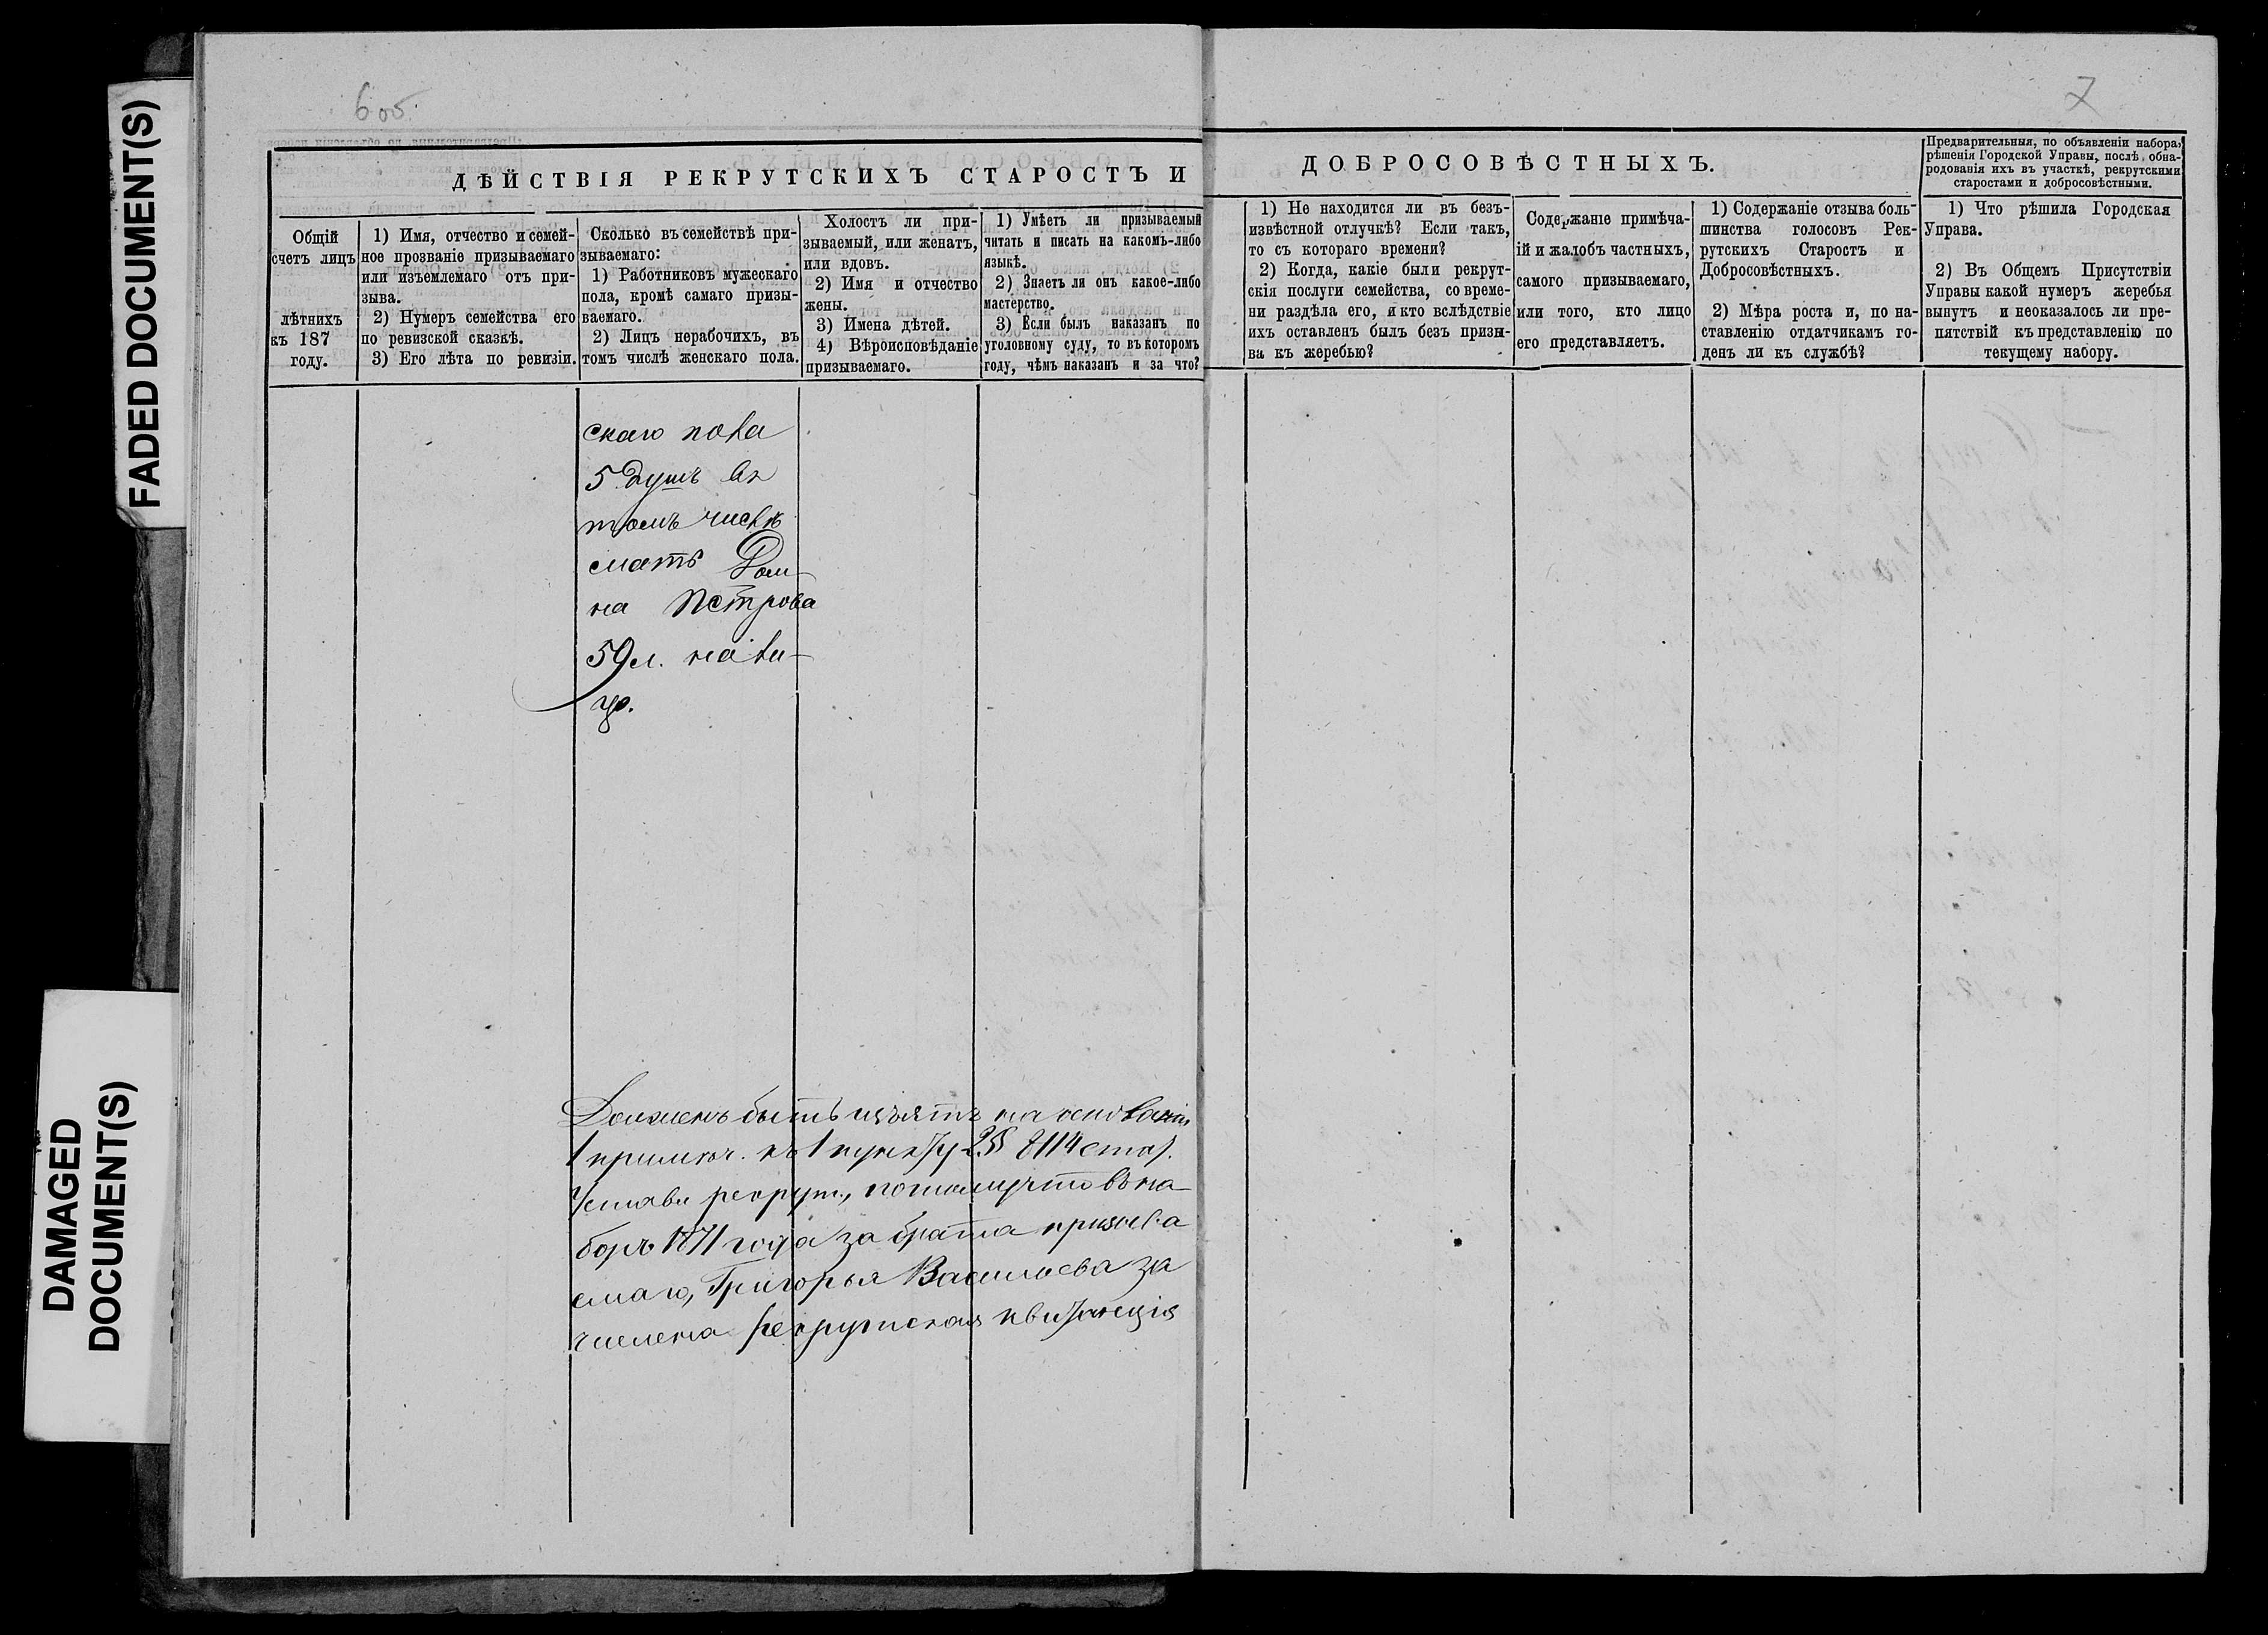 FADED DOCUMENT(S)
DAMAGED
DOCUMENT(S)
6 об.
7
ДѢЙСТВІЯ РЕКРУТСКИХЪ СТАРОСТЪ И ДОБРОСОВѢСТНЫХЪ.
Предварительныя, по объявленіи набора,
рѣшенія Городской Управы, послѣ обна-
родованія ихъ въ участкѣ, рекрутскими
старостами и добросовѣстными.
Общій
счетъ лицъ
лѣтнихъ
къ 187
году.
1) Имя, отчество и семей-
ное прозваніе призываемаго
или изъемлемаго отъ при-
зыва.
2) Нумеръ семейства его
по ревизской сказкѣ.
3) Его лѣта по ревизіи.
Сколько въ семействѣ при-
зываемаго:
1) Работниковъ мужескаго
пола, кромѣ самаго призы-
ваемаго.
2) Лицъ нерабочихъ, въ
томъ числѣ женскаго пола.
Холостъ ли при-
зываемый, или женатъ,
или вдовъ.
2) Имя и отчество
жены.
3) Имена дѣтей.
4) Вѣроисповѣданіе
призываемаго.
1) Умѣетъ ли призываемый
читать и писать на какомъ-либо
языкѣ.
2) Знаетъ ли онъ какое-либо
мастерство.
3) Если былъ наказанъ по
уголовному суду, то въ которомъ
году, чѣмъ наказанъ и за что?
1) Не находится ли въ безъ-
извѣстной отлучкѣ? Если такъ,
то съ котораго времени?
2) Когда, какіе были рекрут-
скія послуги семейства, со време-
ни раздѣла его, и кто вслѣдствіе
ихъ оставленъ былъ безъ призы-
ва къ жеребью?
Содержаніе примѣча-
ій и жалобъ частныхъ,
самого призываемаго,
или того, кто лицо
его представляетъ.
1) Содержаніе отзыва боль-
шинства голосовъ Рек-
рутскихъ Старостъ и
Добросовѣстныхъ.
2) Мѣра роста и, по на-
ставленію отдатчикамъ го-
денъ ли къ службѣ?
1) Что рѣшила Городская
Управа.
2) Въ Общемъ Присутствіи
Управы какой нумеръ жеребья
вынутъ и неоказалось ли пре-
пятствій къ представленію по
текущему набору.
скаго пола
5 душъ въ
томъ числѣ
мать Дом-
на Петрова
59 л. на ли-
цо.
Долженъ быть изъятъ на основаніи
1 примѣч. къ 1 пункту 114 стат.
Устава рекрут., потому что въ на
боръ 1871 года за брата призыва
емаго, Григорья Васильева за
числена рекрутская квитанція